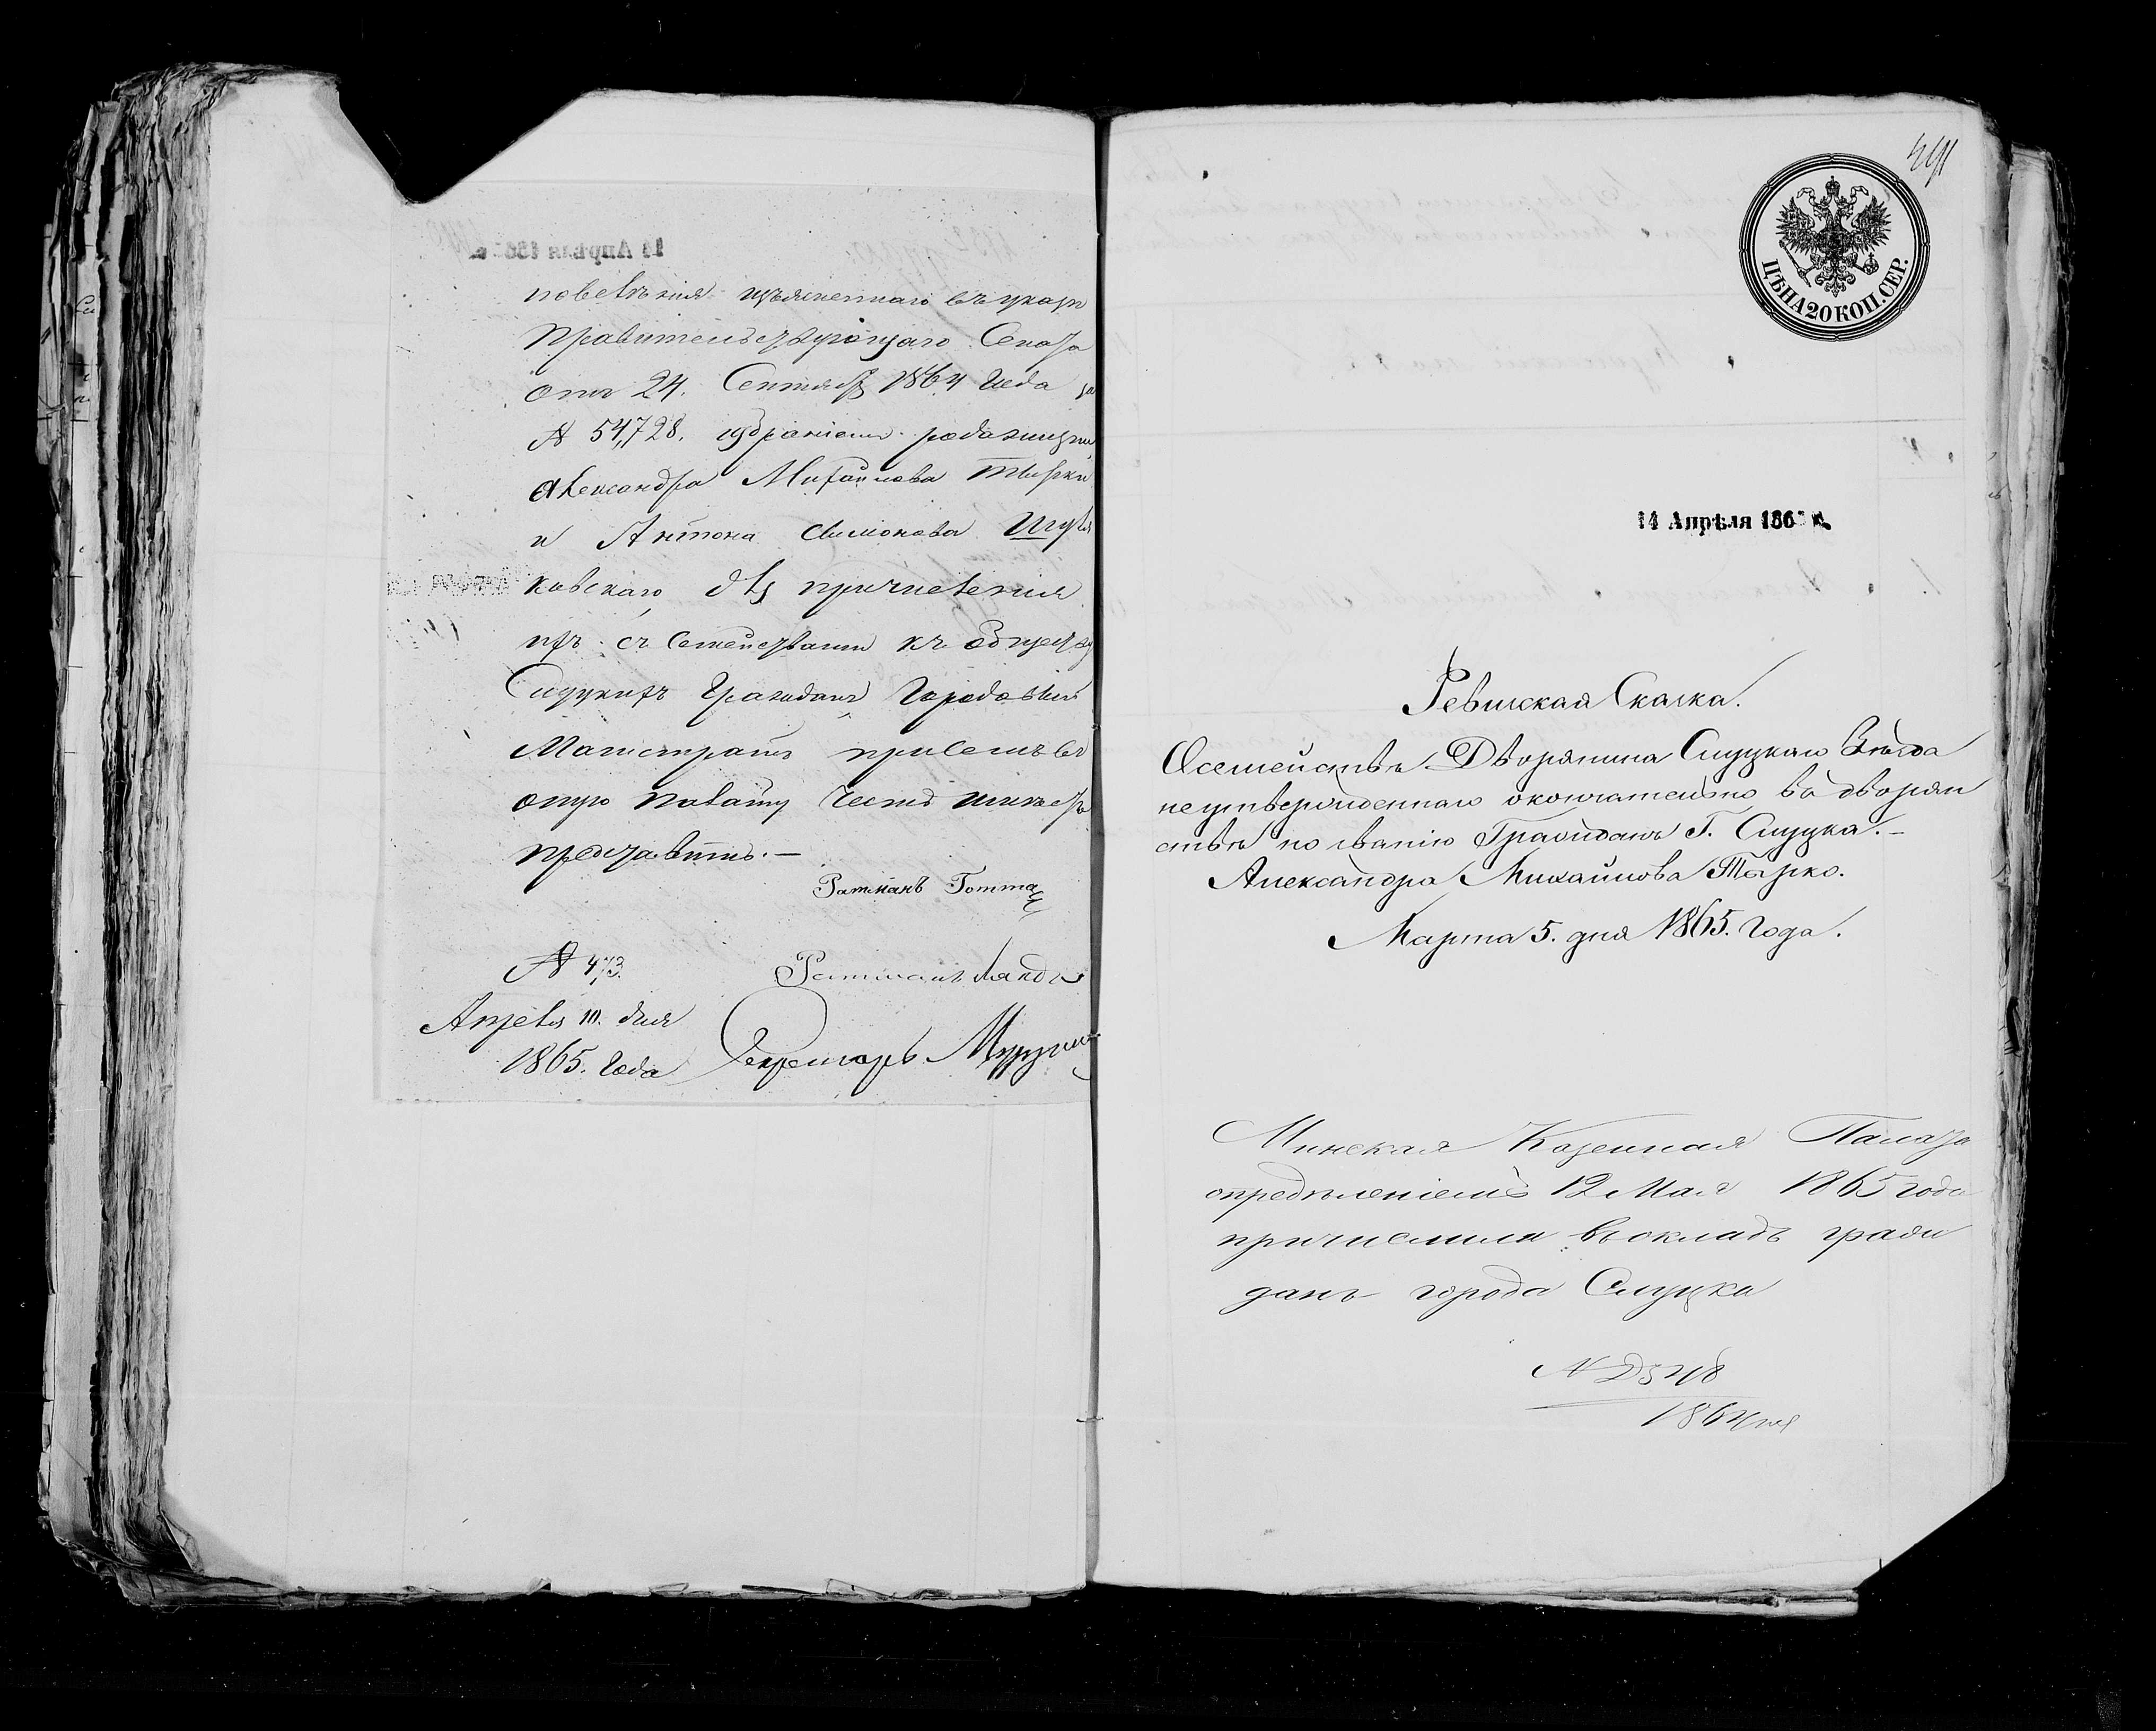 повеленія изъясненнаго въ указѣ
Правительствующаго Сената
отъ 24. Сентября 1864 Года за
№ 54,728. избраніем рода жизни
Александра Михайлова Тырки
и Антона Симонова
ковскаго, для причисленія
ихъ съ Семействами къ Обществу
Слуцкихъ Гражданъ Городовый
Магистратъ
опую Палату Честь имѣетъ
представить.—
Ратманъ
№ 473.
Ратманъ Ландо
Апреля 10. дня
1865. Года
Секретарь
ЦѢНА 20 КОП. СЕР.
14 Апрѣля 186
Ревизская Сказка.
О семействѣ Дворянина Слуцкаго Уѣзда
неутвержденнаго окончательно въ дворян
ствѣ по званію Гражданъ Г. Слуцка.—
Александра Михайлова Тырко.
Марта 5. дня 1865. Года.
Минская Казенная Палата
опредѣленіемъ 12 Мая 1865 года
причислила въ окладъ граж
данъ города Слуцка
1864